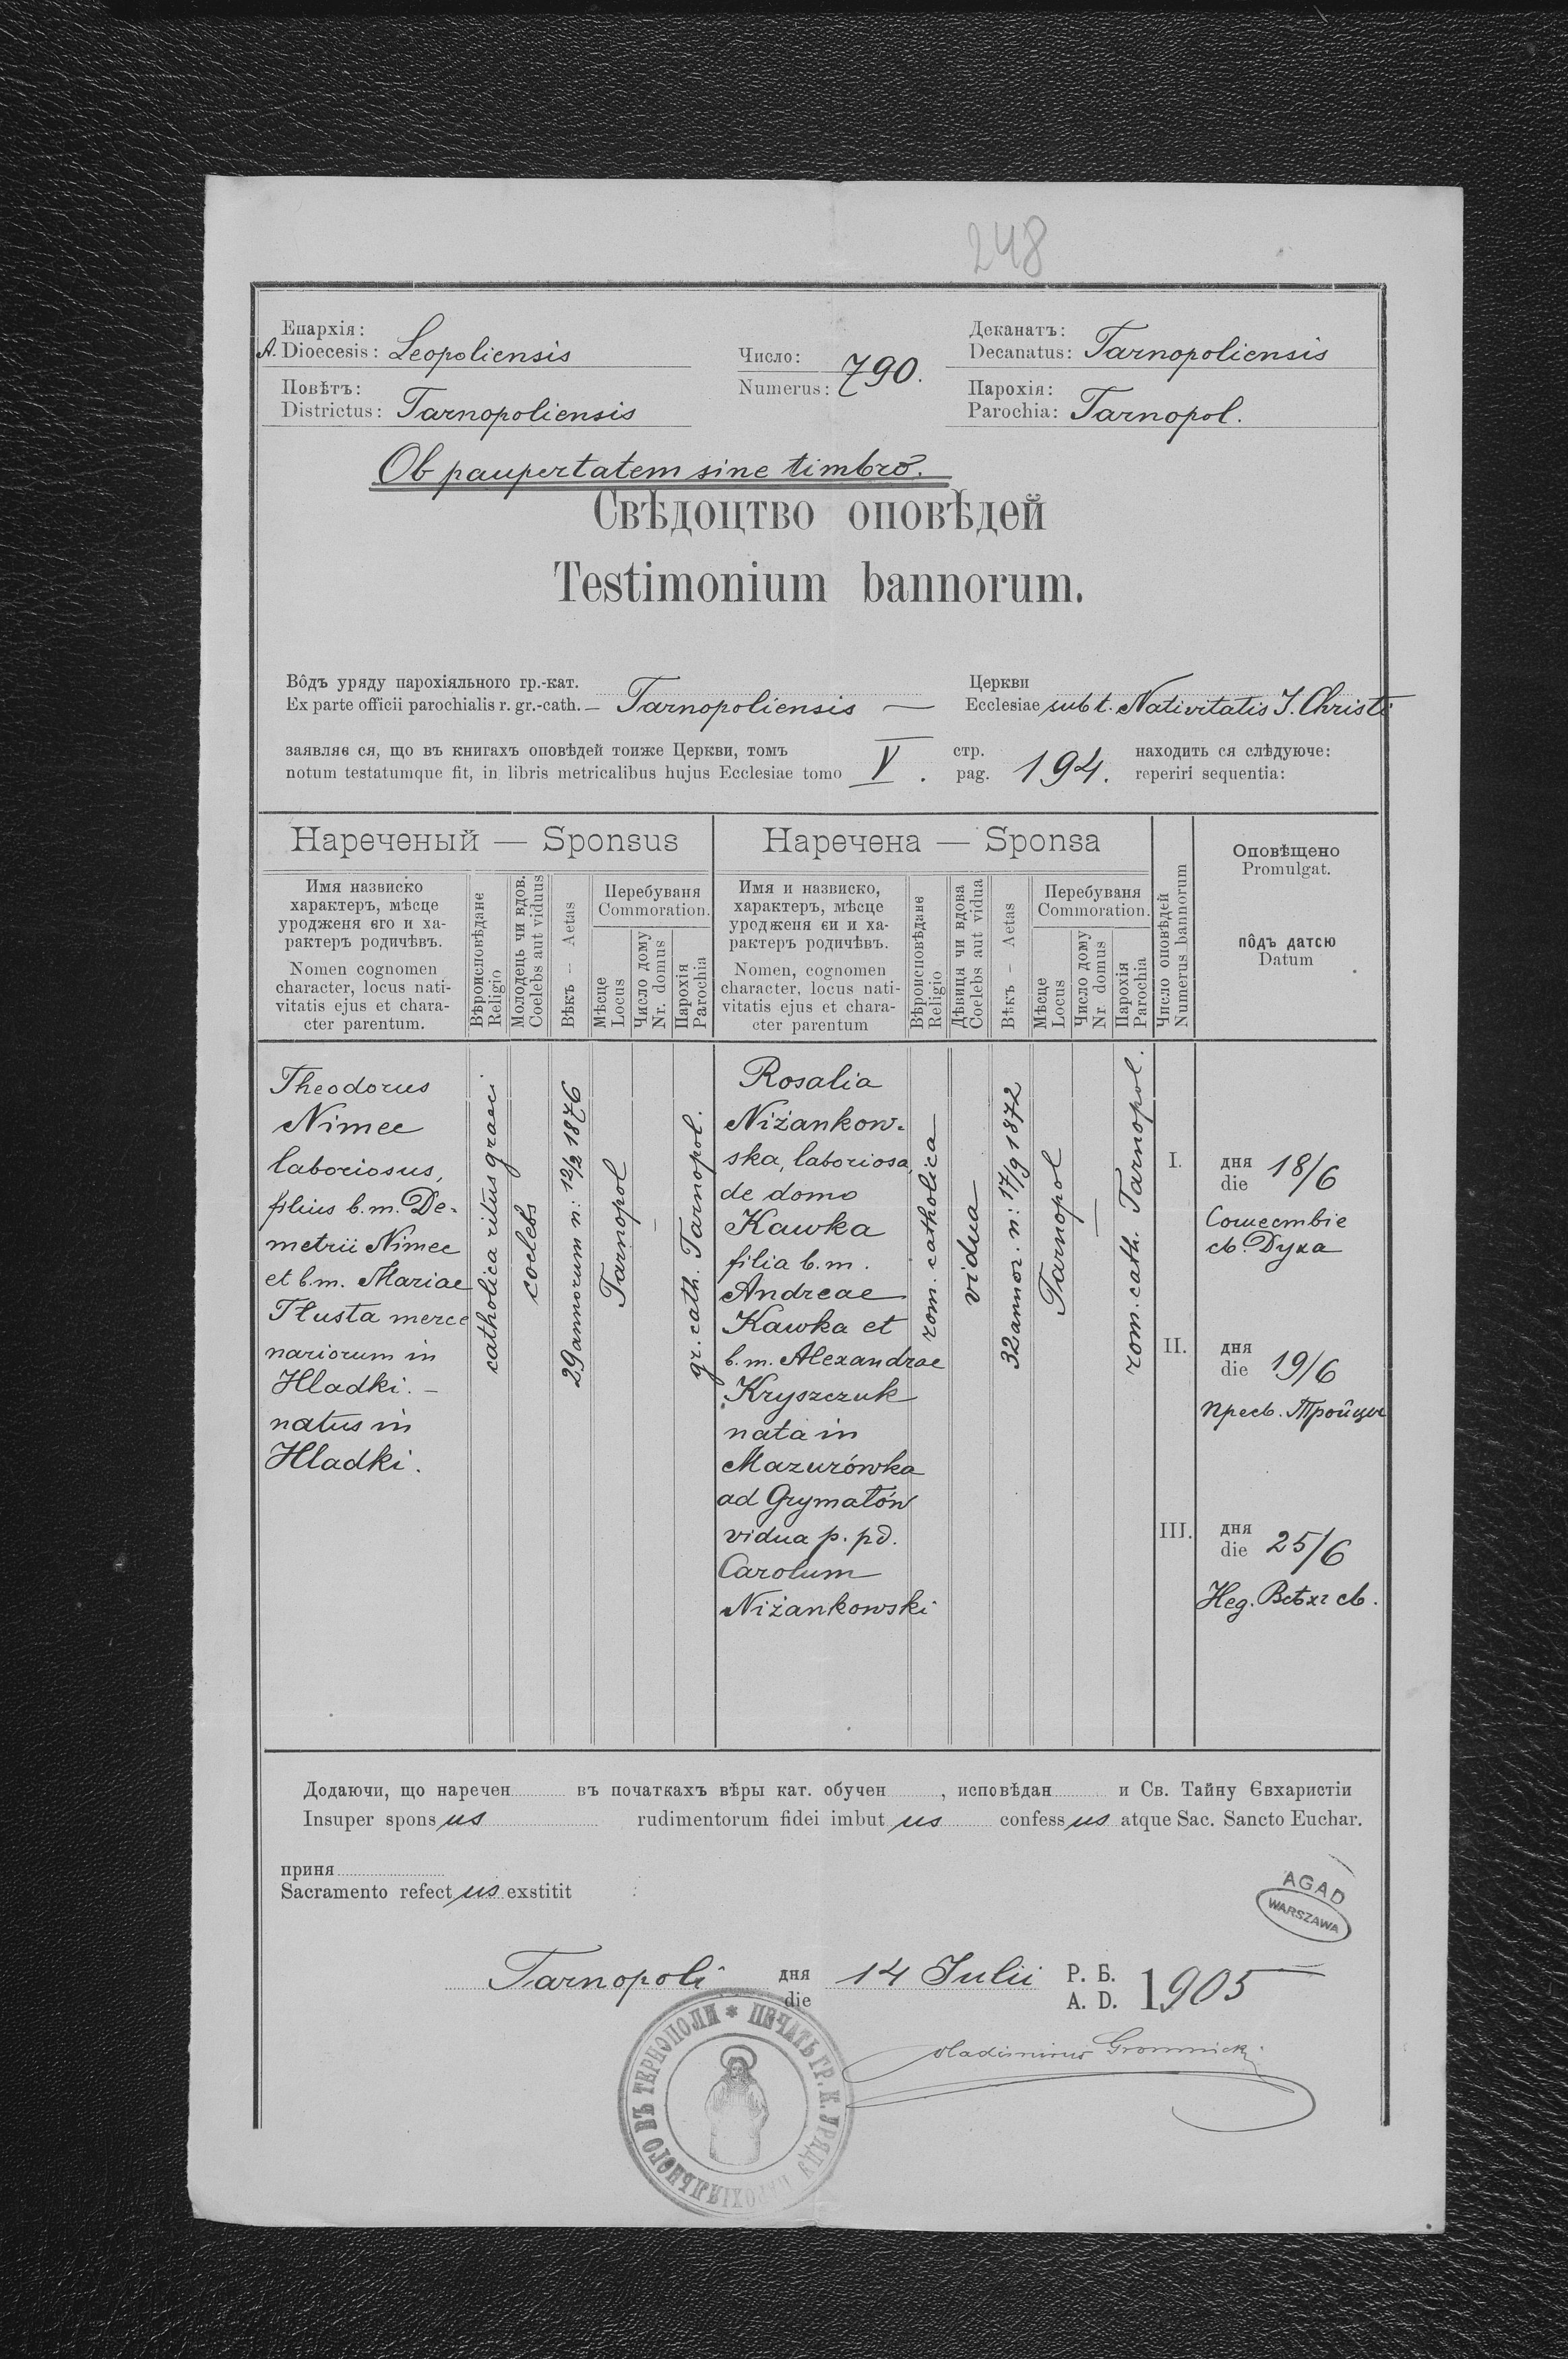 248
Епархія:
A. Dioecesis: Leopoliensis
Повѣтъ:
Districtus: Tarnopoliensis
Число:
Numerus: 790.
Деканатъ:
Decanatus: Tarnopoliensis
Парохія:
Parochia: Tarnopol.
Ob paupertatem sine timbro.
Свѣдоцтво оповѣдей
Testimonium bannorum.
Вôдъ уряду парохіяльного гр.-кат. Церкви
Ex parte officii parochialis r. gr.-cath. – Tarnopoliensis — Ecclesiae sub t. Nativitatis J. Christi
заявляє ся, що въ книгахъ оповѣдей тоиже Церкви, томъ стр. находить ся слѣдуюче:
notum testatumque fit, in libris metricalibus hujus Ecclesiae tomo V. pag. 194. reperiri sequentia:
Нареченый — Sponsus
Имя назвиско
характеръ, мѣсце
уродженя єго и ха-
рактеръ родичѣвъ.
Nomen cognomen
character, locus nati-
vitatis ejus et chara-
cter parentum.
Вѣроисповѣдане
Religio
Молодець чи вдов.
Coelebs aut viduus
Вѣкъ – Aetas
Перебуваня
Commoration.
Мѣсце
Locus
Число дому
Nr. domus
Парохія
Parochia
Наречена — Sponsa
Имя и назвиско,
характеръ, мѣсце
уродженя єи и ха-
рактеръ родичѣвъ.
Nomen, cognomen
character, locus nati-
vitatis ejus et chara-
cter parentum
Вѣроисповѣданє
Religio
Дѣвиця чи вдова
Coelebs aut vidua
Вѣкъ – Aetas
Перебуваня
Commoration.
Мѣсце
Locus
Число дому
Nr. domus
Парохія
Parochia
Число оповѣдей
Numerus bannorum
Оповѣщено
Promulgat.
пôдъ датсю
Datum
Theodorus
Nimec
laboriosus,
filius b.m. De-
metrii Nimec
et b.m. Mariae
Tłusta merce
nariorum in
Hladki. –
natus in
Hladki.
catholica ritus graeci
coelebs
29 annorum n: 12/2 1876
Tarnopol
–
gr. cath. Tarnopol.
Rosalia
Niżankow-
ska, laboriosa,
de domo
Kawka
filia b.m.
Andreae
Kawka et
b.m. Alexandrae
Kryszczuk
nata in
Mazurówka
ad Grymałów
vidua p. pd.
Carolum
Niżankowski
rom. catholica
vidua
32 annor. n: 17/9 1872
Tarnopol
—
rom. cath. Tarnopol.
I.
дня
die 18/6
Сошествіе
св. Духа
II.
дня
die 19/6
Пресв. Тройцы
III.
дня
die 25/6
Нед. Всѣхъ св.
Додаючи, що наречен въ початкахъ вѣры кат. обучен , исповѣдан и Св. Тайну Євхаристіи
Insuper spons us rudimentorum fidei imbut us confess us atque Sac. Sancto Euchar.
приня
Sacramento refect us exstitit
AGAD
WARSZAWA
Tarnopoli дня
die 14 Julii Р. Б.
A. D. 1905
Vladimirus Gromnicki
ПЕЧАТЬ ГР. К. УРЯДУ ПАРОХІЯЛЬНОГО ВЪ ТЕРНОПОЛИ